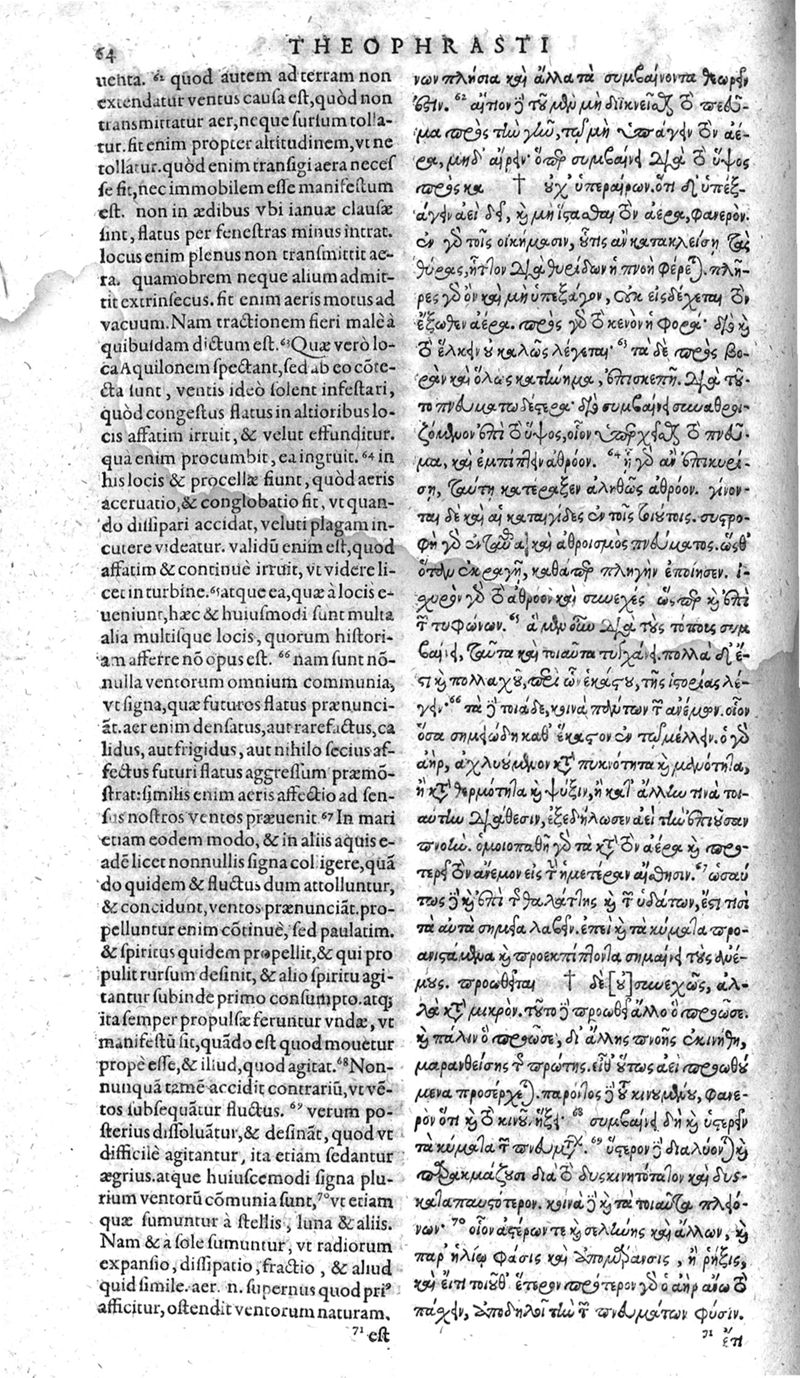 64
THEOPHRASTI
uenta. 62 quod autem ad terram non
extendatur ventus causa est, quòd non
transmittatur aer, neque sursum tolla-
tur. fit enim propter altitudinem, vt ne
tollatur. quòd enim transigi aera neces
se sit, nec immobilem esse manifestum
est. non in ædibus vbi ianuæ clausæ
sint, flatus per fenestras minus intrat.
locus enim plenus non transmittit ae-
ra. quamobrem neque alium admit-
tit extrinsecus. fit enim aeris motus ad
vacuum. Nam tractionem fieri malè à
quibusdam dictum est. 63 Quæ verò lo-
ca Aquilonem spectant, sed ab eo cōte-
cta sunt, ventis ideò solent infestari,
quòd congestus flatus in altioribus lo-
cis affatim irruit, & velut effunditur.
qua enim procumbit, ea ingruit. 64 in
his locis & procellæ fiunt, quòd aeris
aceruatio, & conglobatio fit, vt quan-
do dissipari accidat, veluti plagam in-
cutere videatur. validū enim est, quod
affatim & continuè irruit, vt videre li-
cet in turbine. 65 atque ea, quæ à locis e-
ueniunt, hæc & huiusmodi sunt multa
alia multisque locis, quorum histori-
am afferre nō opus est. 66 nam sunt nō-
nulla ventorum omnium communia,
vt signa, quæ futuros flatus prænunci-
āt. aer enim densatus, aut rarefactus, ca
lidus, aut frigidus, aut nihilo secius af-
fectus futuri flatus aggressum præmō-
strat: similis enim aeris affectio ad sen-
sus nostros ventos præuenit. 67 In mari
etiam eodem modo, & in aliis aquis e-
adē licet nonnullis signa colligere, quā
do quidem & fluctus dum attolluntur,
& concidunt, ventos prænunciāt. pro-
pelluntur enim cōtinuè, sed paulatim.
& spiritus quidem propellit, & qui pro
pulit rursum desinit, & alio spiritu agi-
tantur subinde primo consumpto. atq;
ita semper propulsæ feruntur vndæ, vt
manifestū sit, quādo est quod mouetur
propè esse, & illud, quod agitat. 68 Non-
nunquā tamē accidit contrariū, vt vē-
tos subsequātur fluctus. 69 verum po-
sterius dissoluātur, & desināt, quod vt
difficilè agitantur, ita etiam sedantur
ægrius. atque huiuscemodi signa plu-
rium ventorū cōmunia sunt, 70 vt etiam
quæ sumuntur à stellis, luna & aliis.
Nam & à sole sumuntur, vt radiorum
expansio, dissipatio, fractio, & aliud
quid simile. aer. n. supernus quod pri9
afficitur, ostendit ventorum naturam.
71 est
νων πλησία καὶ ἄλλα τὰ συμβαίνοντα θεωρεῖν
ἐστιν. 62 αἴτιον δὲ τοῦ μὲν μὴ διικνεῖσθαι τὸ πνεῦ-
μα πρὸς τὴν γῆν, τῷ μὴ ὑπάγειν τὸν ἀέ-
ρα, μηδ' αἴρειν· ὅπερ συμβαίνει διὰ τὸ ὕψος
πρὸς κα † οὐχ' ὑπεραίρων. ὅτι δ' ὑπεξ-
άγειν ἀεὶ δεῖ, καὶ μὴ ἵστασθαι τὸν ἀέρα, φανερόν.
ἐν γὰρ τοῖς οἰκήμασιν, οὗτις ἂν κατακλείση τὰς
θύρας, ἧττον διὰ θυρίδων ἡ πνοὴ φέρεται. πλῆ-
ρες γὰρ ὂν καὶ μὴ ὑπεξάγον, οὐκ εἰσδέχεται τὸν
ἔξωθεν ἀέρα. πρὸς γὰρ τὸ κενὸν ἡ φορά· διὸ καὶ
τὸ ἕλκειν οὐ καλῶς λέγεται· 63 τὰ δὲ πρὸς βο-
ρᾶν καὶ ὅλως κατάνημα, ἐπισκεπῆ. διὰ τοῦ-
το πνευματωδέστερα· διὸ συμβαίνει συναθροι-
ζόμενον ἐπὶ τὸ ὕψος, οἷον ὑπερχεῖσθαι τὸ πνεῦ-
μα, καὶ ἐμπίπτειν ἀθρόον. 64 ᾗ γὰρ ἂν ἐπικυρί-
ση, ταύτη κατέραξεν ἀληθῶς ἀθρόον. γίνον-
ται δὲ καὶ αἱ καταιγίδες ἐν τοῖς τούτοις. συστρο-
φὴ γὰρ ἐνταῦθα καὶ ἀθροισμὸς πνεύματος. ὥσθ'
ὅταν ἐκραγῆ, καθάπερ πληγὴν ἐποίησεν. ἰ-
σχυρὸν γὰρ τὸ ἀθρόον καὶ συνεχὲς ὥσπερ καὶ ἐπὶ
τῶν τυφώνων. 65 ἃ μὲν οὖν διὰ τοὺς τόπους συμ
βαίνει, ταῦτα καὶ τοιαῦτα τυγχάνει. πολλὰ δ' ἔ-
στι καὶ πολλαχοῦ, περὶ ὧν ἑκάστου, τῆς ἱστορίας λέ-
γειν· 66 τὰ δὲ τοιάδε, κοινὰ πάντων τῶν ἀνέμων. οἷον
ὅσα σημειώδη καθ' ἕκαστον ἐν τῷ μέλλειν. ὁ γὰρ
ἀὴρ, ἀχλυούμενον κατὰ πυκνότητα καὶ μανότητα,
ἢ κατὰ θερμότητα καὶ ψύξιν, ἢ κατ' ἄλλην τινὰ τοι-
αύτην διάθεσιν, ἐξεδήλωσεν ἀεὶ τὴν ἐπιοῦσαν
πνοὴν. ὁμοιοπαθῆ γὰρ τὰ κατὰ τὸν ἀέρα καὶ πρό-
τερον τὸν ἄνεμον εἰς τὴν ἡμετέραν αἴσθησιν. 67 ὡσαύ
τως δὲ καὶ ἐπὶ τῆς θαλάττης καὶ τῶν ὑδάτων, ἔστι τισὶ
τὰ αὐτὰ σημεῖα λαβεῖν. ἐπεὶ καὶ τὰ κύματα προ-
ανιστάμενα καὶ προεκπίπτοντα σημαίνει τοὺς ἀνέ-
μους. προωθεῖται † δὲ [οὐ] συνεχῶς, ἀλ-
λὰ κατὰ μικρόν. τοῦτο δὲ προωθεῖ ἄλλο ὃ προέωσε.
καὶ πάλιν ὃ προέωσε, δι' ἄλλης πνοῆς ἐκινήθη,
μαρανθείσης τῆς πρώτης. εἶθ' οὕτως ἀεὶ προωθού
μενα προσέρχεται. παρόντος δὲ τοῦ κινουμένου, φανε-
ρὸν ὅτι καὶ τὸ κινοῦν ἥξει· 68 συμβαίνει δὴ καὶ ὑστερεῖν
τὰ κύματα τῶν πνευμάτων. 69 ὕστερον δὲ διαλύονται καὶ
παρακμάζουσι διὰ τὸ δυσκινητότατον καὶ δυσ-
καταπαυστότερον. κοινὰ δὲ καὶ τὰ τοιαῦτα πλειό-
νων· 70 οἷον ἀστέρων τε καὶ σελήνης καὶ ἄλλων, καὶ
παρ' ἡλίῳ φάσις καὶ ἀπομάρανσις, ἢ ῥῆξις,
καὶ εἴ τι τοιοῦθ' ἕτερον πρότερον γὰρ ὁ ἀὴρ ἄνω τὸ
πάσχειν, ἀποδηλοῖ τὴν τῶν πνευμάτων φύσιν.
71 ἔτι